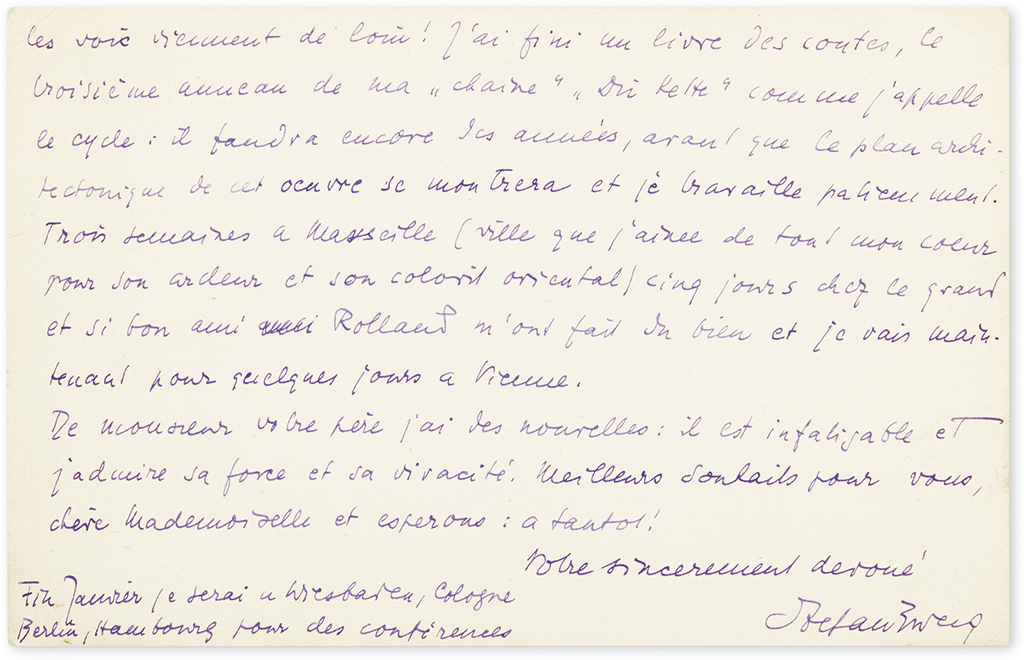 les voix viennent de loin! J'ai fini un livre des contes, le
troisième anneau de ma „chaine“ „Die Kette“ comme j'appelle
le cycle: il faudra encore des années, avant que le plan archi-
tectonique de cet oeuvre se montrera et je travaille patiemment.
Trois semaines a Marseille (ville que j'aime de tout mon coeur
pour son ardeur et son colorit oriental) cinq jours chez le grand
et si bon ami Rolland m'ont fait du bien et je vais main-
tenant pour quelques jours a Vienne.
De monsieur votre père j'ai des nouvelles: il est infatigable et
j'admire sa force et sa vivacité. Meilleurs souhaits pour vous,
chère Mademoiselle et esperons: a tantot!
Votre sincerement devoué
Stefan Zweig
Fin Janvier je serai a Wiesbaden, Cologne
Berlin, Hambourg pour des conférences